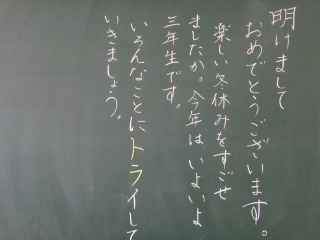 明けまして
おめでとうございます。
楽しい冬休みをすごせ
ましたか。今年はいよいよ
三年生です。
いろんなことにトライして
いきましょう。